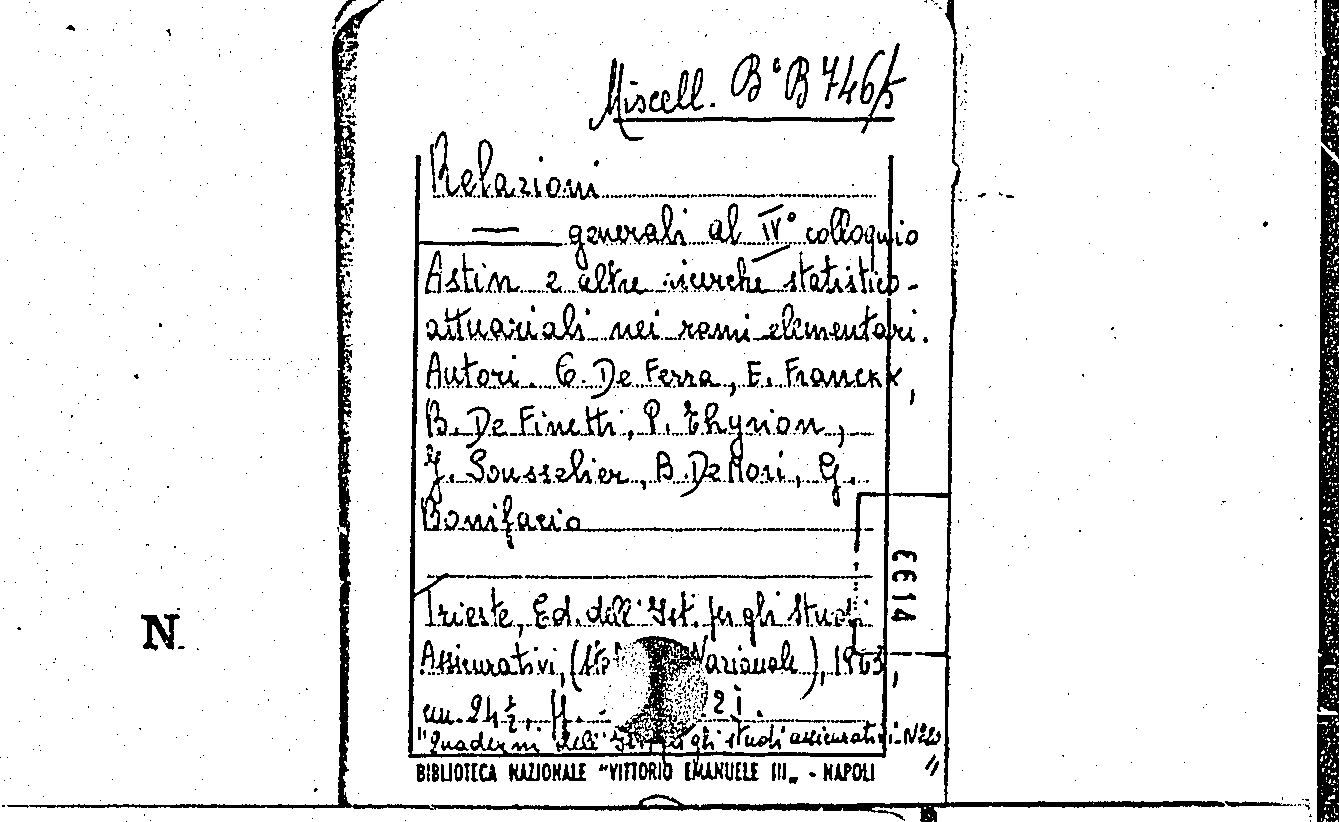 Miscell. B° B 746/5
Relazioni
— generali al IV° colloquio
Astin e altre ricerche statistico-
attuariali nei rami elementari.
Autori. G. De Ferra, E. Franckx,
B. De Finetti, P. Thyrion,
J. Sousselier, B. De Mori, G.
Bonifacio
6614
Trieste, Ed. dell'Ist. per gli studi
N.
Assicurativi, Nazionale), 1963,
cm. 24½,
"Quaderni dell' gli studi assicurativi. N°20"
BIBLIOTECA NAZIONALE "VITTORIO EMANUELE III„ - NAPOLI